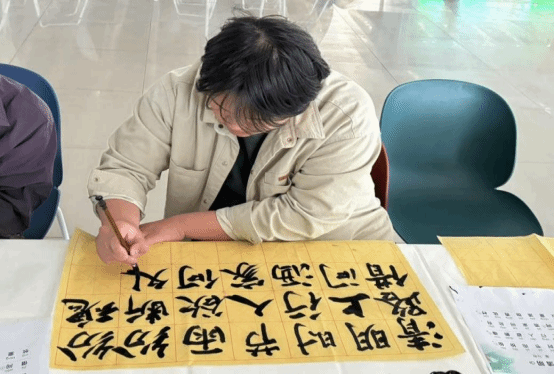 清明时节雨纷纷
路上行人欲断魂
借问酒家何处